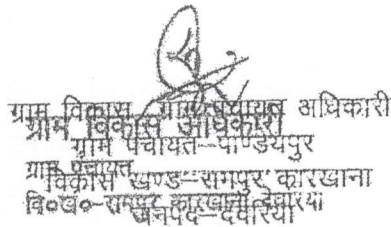 ग्राम विकास ग्राम पंचायत अधिकारी
ग्राम विकास अधिकारी
ग्राम पंचायत-पाण्डेयपुर
ग्राम पंचायत
विकास खण्ड-रामपुर कारखाना
वि०ख०-रामपुर कारखाना देवरिया
जनपद-देवरिया